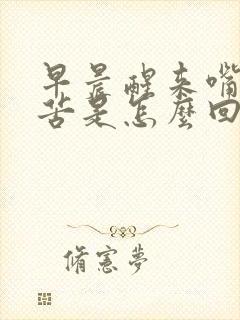 早晨醒来嘴
苦是怎麼回
脩憲夢